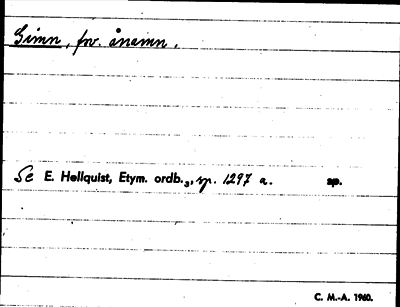 Simn, for. ånamn.
Se E. Hellquist, Etym. ordb.₃, sp. 1297 a. sp.
C. M.-A. 1960.